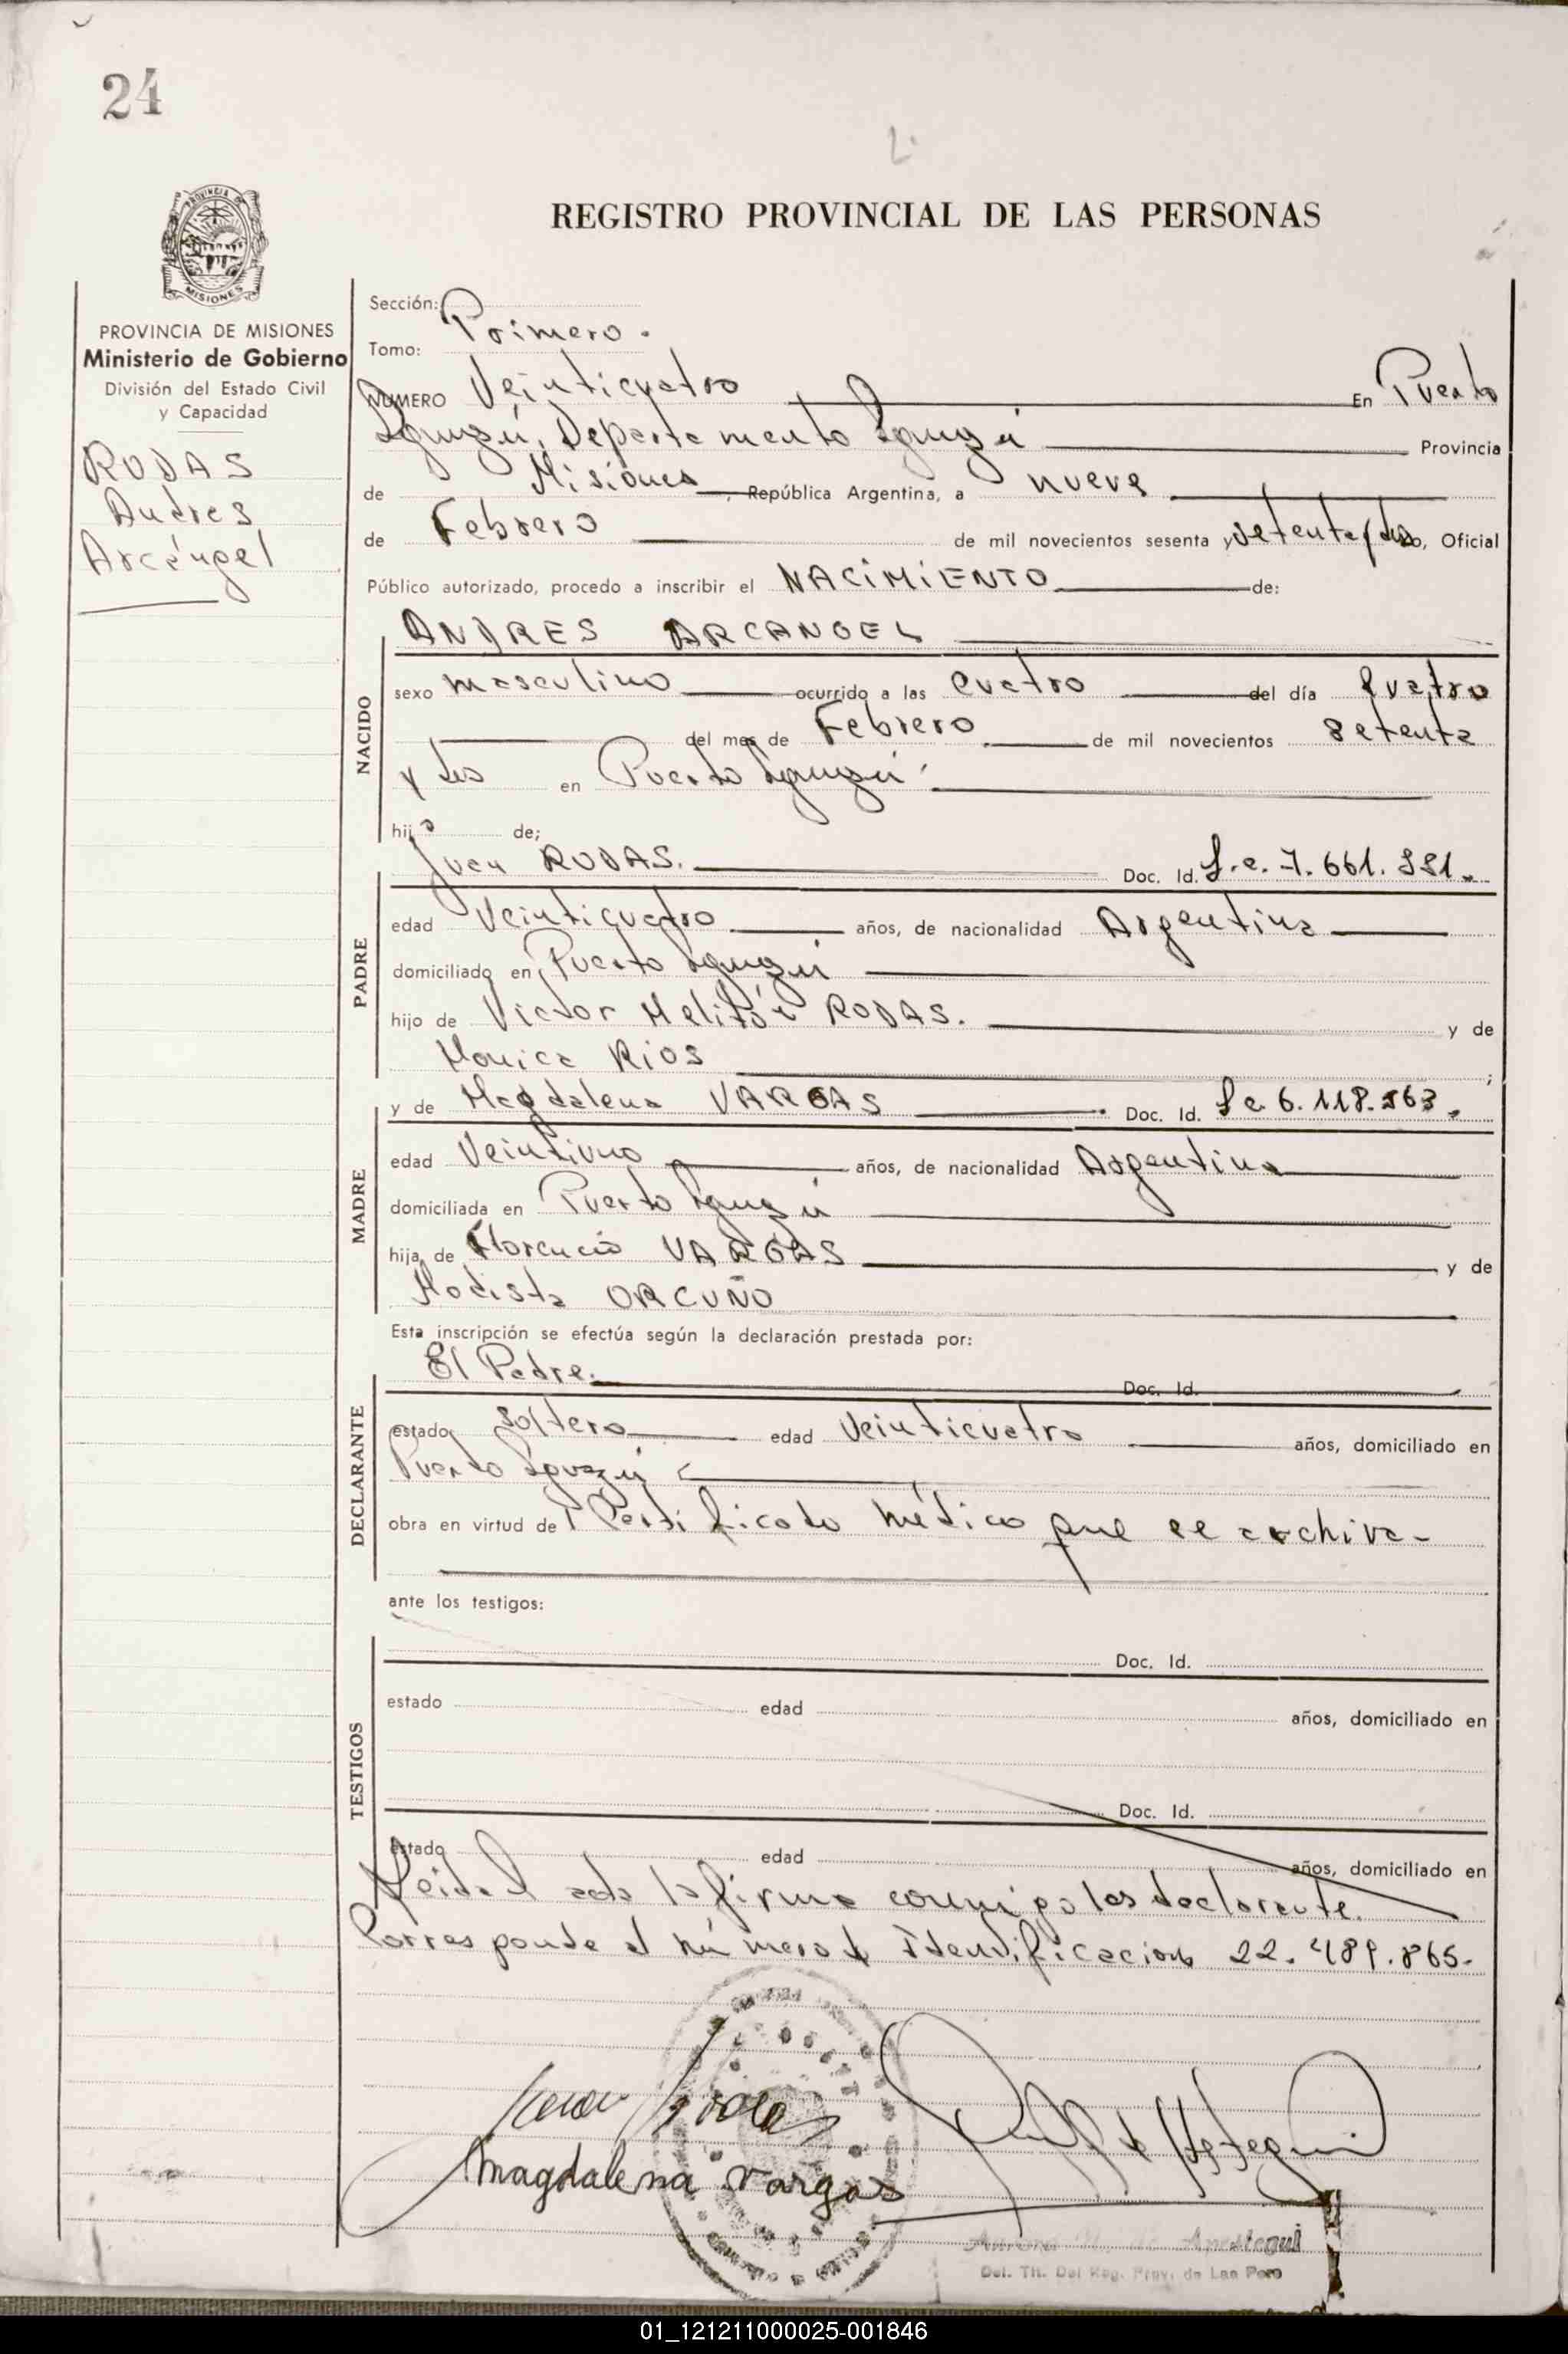 24
REGISTRO PROVINCIAL DE LAS PERSONAS
PROVINCIA DE MISIONES
Ministerio de Gobierno
División del Estado Civil
y Capacidad
RODAS
Andres
Arcángel
Sección:
Tomo: Primero.
NUMERO Veinticuatro En Puerto
Iguazú, Departamento Iguazú Provincia
de Misiones, República Argentina, a nueve
de Febrero de mil novecientos sesenta y setenta y dos, Oficial
Público autorizado, procedo a inscribir el NACIMIENTO de:
ANDRES ARCANGEL
NACIDO
sexo masculino ocurrido a las cuatro del día cuatro
del mes de Febrero de mil novecientos setenta
y dos en Puerto Iguazú
hijo de;
PADRE
Juan RODAS. Doc. Id. L.e. 7.661.
edad Veinticuatro años, de nacionalidad Argentina
domiciliado en Puerto Iguazú
hijo de Victor Melitón RODAS. y de
Monica RIOS ;
MADRE
y de Magdalena VARGAS Doc. Id. 6.118.
edad Veintiuno años, de nacionalidad Argentina
domiciliada en Puerto Iguazú
hija de Florencio VARGAS y de
Modista ORCUÑO
Esta inscripción se efectúa según la declaración prestada por:
DECLARANTE
El Padre. Doc. Id.
estado soltero edad Veinticuatro años, domiciliado en
Puerto Iguazú
obra en virtud de Certificado médico que se archiva-
ante los testigos:
TESTIGOS
Doc. Id.
estado edad años, domiciliado en
Doc. Id.
estado edad años, domiciliado en
Leida el acta la firma conmigo los declarante.
Corresponde el número de Identificacion 22.489.865.
Juan Rodas
Magdalena Vargas
de Apestegui
Del. Tit. Del Reg. Prov. de Las Pers
01_121211000025-001846